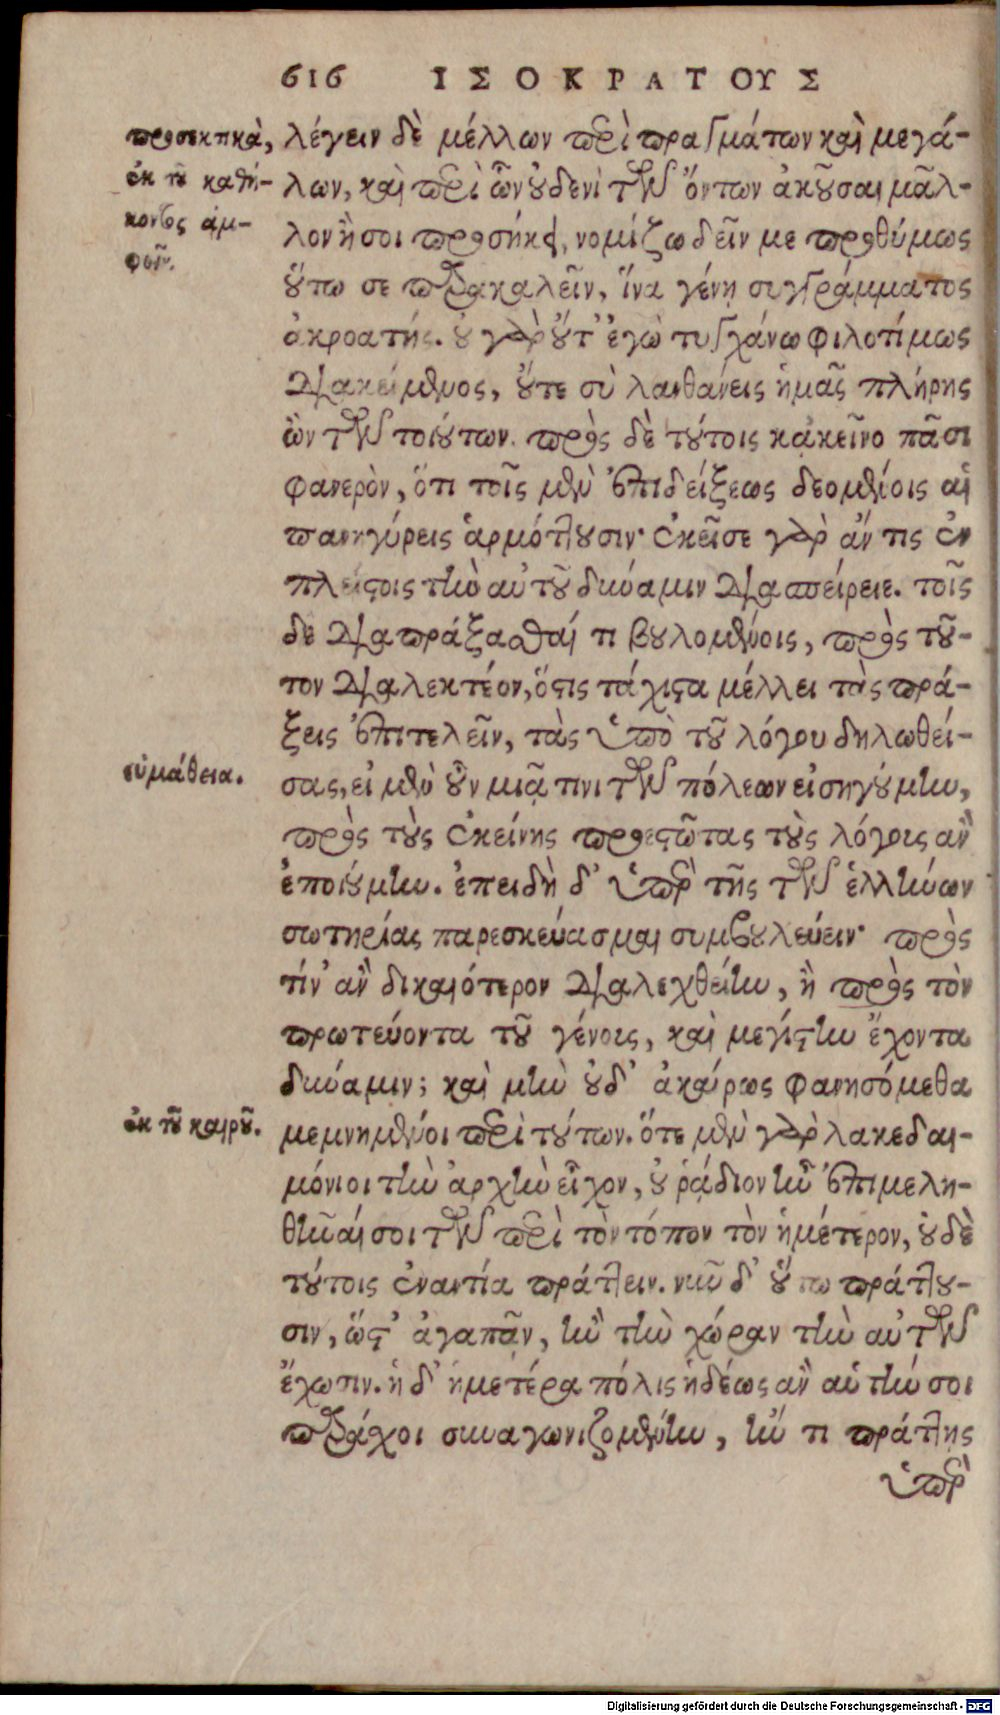 616 ΙΣΟΚΡΑΤΟΥΣ
προσεκτικὰ,
ἐκ τοῦ καθή-
κοντος ἀμ-
φοῖν.
λέγειν δὲ μέλλων περὶ πραγμάτων καὶ μεγά-
λων, καὶ περὶ ὧν οὐδενὶ τῶν ὄντων ἀκοῦσαι μᾶλ-
λον ἢ σοι προσήκει, νομίζω δεῖν με προθύμως
οὕτω σε παρακαλεῖν, ἵνα γένῃ συγγράμματος
ἀκροατής. οὐ γὰρ οὔτ' ἐγὼ τυγχάνω φιλοτίμως
διακείμενος, οὔτε σὺ λανθάνεις ἡμᾶς πλήρης
ὢν τῶν τοιούτων. πρὸς δὲ τούτοις κἀκεῖνο πᾶσι
φανερὸν, ὅτι τοῖς μὲν ἐπιδείξεως δεομένοις αἱ
πανηγύρεις ἁρμόττουσιν· ἐκεῖσε γὰρ ἄν τις ἐν
πλείστοις τὴν αὑτοῦ δύναμιν διασπείρειε. τοῖς
δε διαπράξασθαί τι βουλομένοις, πρὸς τοῦ-
τον διαλεκτέον, ὅστις τάχιστα μέλλει τὰς πρά-
ξεις ἐπιτελεῖν, τὰς ὑπὸ τοῦ λόγου δηλωθεί-
εὐμάθεια.
σας, εἰ μὲν οὖν μιᾷ τινι τῶν πόλεων εἰσηγούμην,
πρὸς τοὺς ἐκείνης προεστῶτας τοὺς λόγους ἂν
ἐποιούμην. ἐπειδὴ δ' ὑπὲρ τῆς τῶν ἑλλήνων
σωτηρίας παρεσκεύασμαι συμβουλεύειν· πρὸς
τίν' ἂν δικαιότερον διαλεχθείην, ἢ πρὸς τὸν
πρωτεύοντα τοῦ γένους, καὶ μεγίστην ἔχοντα
δύναμιν; καὶ μὴν οὐδ' ἀκαίρως φανησόμεθα
ἐκ τοῦ καιροῦ.
μεμνημένοι περὶ τούτων. ὅτε μὲν γὰρ λακεδαι-
μόνιοι τὴν ἀρχὴν εἶχον, οὐ ῥάδιον ἦν ἐπιμελη-
θῆναί σοι τῶν περὶ τὸν τόπον τὸν ἡμέτερον, οὐδὲ
τούτοις ἐναντία πράττειν. νῦν δ' οὕτω πράττου-
σιν, ὥστ' ἀγαπᾶν, ἢν τὴν χώραν τὴν αὑτῶν
ἔχωσιν. ἡ δ' ἡμετέρα πόλις ἡδέως ἂν αὑτήν σοι
παράχοι συναγωνιζομένην, ἤν τι πράττῃς
ὑπὲρ
Digitalisierung gefördert durch die Deutsche Forschungsgemeinschaft - DFG